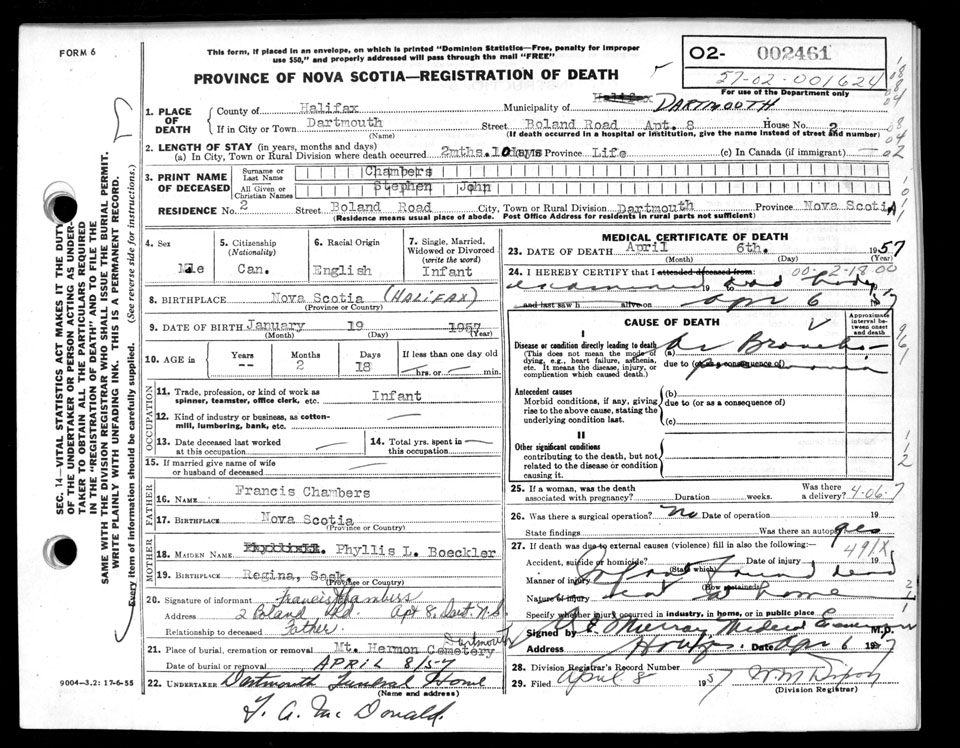 FORM 6
This form, if placed in an envelope, on which is printed "Dominion Statistics—Free, penalty for improper
use $50," and properly addressed will pass through the mail "FREE"
PROVINCE OF NOVA SCOTIA—REGISTRATION OF DEATH
O2- 002461
57-02-001624
For use of the Department only
1. PLACE OF DEATH
County of Halifax Municipality of Halifax DARTMOUTH
If in City or Town Dartmouth Street Boland Road Apt. 8 House No. 2
(Name) (If death occurred in a hospital or institution, give the name instead of street and number)
2. LENGTH OF STAY (in years, months and days)
(a) In City, Town or Rural Division where death occurred 2mths. 10 days Province Life (c) In Canada (if immigrant) —
3. PRINT NAME OF DECEASED
Surname or Last Name Chambers
All Given or Christian Names Stephen John
RESIDENCE No. 2 Street Boland Road City, Town or Rural Division Dartmouth Province Nova Scotia
(Residence means usual place of abode. Post Office Address for residents in rural parts not sufficient)
4. Sex Male
5. Citizenship (Nationality) Can.
6. Racial Origin English
7. Single, Married, Widowed or Divorced (write the word) Infant
8. BIRTHPLACE Nova Scotia (HALIFAX)
(Province or Country)
9. DATE OF BIRTH January 19 1957
(Month) (Day) (Year)
10. AGE in Years Months Days If less than one day
-- 2 18 hrs. or min.
OCCUPATION
11. Trade, profession, or kind of work as
spinner, teamster, office clerk, etc. Infant
12. Kind of industry or business, as cotton-
mill, lumbering, bank, etc. —
13. Date deceased last worked
at this occupation —
14. Total yrs. spent in
this occupation —
15. If married give name of wife
or husband of deceased —
FATHER
16. NAME Francis Chambers
17. BIRTHPLACE Nova Scotia
(Province or Country)
MOTHER
18. MAIDEN NAME Phyllis L. Boeckler
19. BIRTHPLACE Regina, Sask.
(Province or Country)
20. Signature of informant Francis Chambers
Address 2 Boland Rd. Apt 8, Dart. N.S.
Relationship to deceased Father.
21. Place of burial, cremation or removal Mt. Hermon Cemetery Dartmouth
Date of burial or removal APRIL 8/57
22. UNDERTAKER Dartmouth Funeral Home
(Name and address)
A. McDonald.
MEDICAL CERTIFICATE OF DEATH
23. DATE OF DEATH April 6th. 1957
(Month) (Day) (Year)
24. I HEREBY CERTIFY that I attended deceased from: 00-2-18.00
examined dead body 19
and last saw h alive on Apr 6 1957
CAUSE OF DEATH
Approximate interval between onset and death
I
Disease or condition directly leading to death
(This does not mean the mode of
dying, e.g., heart failure, asthenia,
etc. It means the disease, injury, or
complication which caused death.)
(a) Ac Broncho-
due to (or as a consequence of) pneumonia
Antecedent causes
Morbid conditions, if any, giving
rise to the above cause, stating the
underlying condition last.
(b)
due to (or as a consequence of)
(c)
II
Other significant conditions
contributing to the death, but not
related to the disease or condition
causing it.
25. If a woman, was the death
associated with pregnancy? Duration weeks. Was there a delivery? 4-06-7
26. Was there a surgical operation? No Date of operation 19
State findings Was there an autopsy? yes
27. If death was due to external causes (violence) fill in also the following:—
491X
Accident, suicide or homicide? Date of injury 19
(State which)
Manner of injury Infant found dead
(How sustained)
Nature of injury at home
Specify whether injury occurred in industry, in home, or in public place
Signed by Murray Medical Examiner M.D.
Address Date Apr 6 1957
28. Division Registrar's Record Number
29. Filed April 8 1957 W. M. Dixon
(Division Registrar)
SEC. 14—VITAL STATISTICS ACT MAKES IT THE DUTY
OF THE UNDERTAKER OR PERSON ACTING AS UNDER-
TAKER TO OBTAIN ALL THE PARTICULARS REQUIRED
IN THE "REGISTRATION OF DEATH" AND TO FILE THE
SAME WITH THE DIVISION REGISTRAR WHO SHALL ISSUE THE BURIAL PERMIT.
WRITE PLAINLY WITH UNFADING INK. THIS IS A PERMANENT RECORD.
Every item of information should be carefully supplied. (See reverse side for instructions.)
9004—3.2: 17-6-55